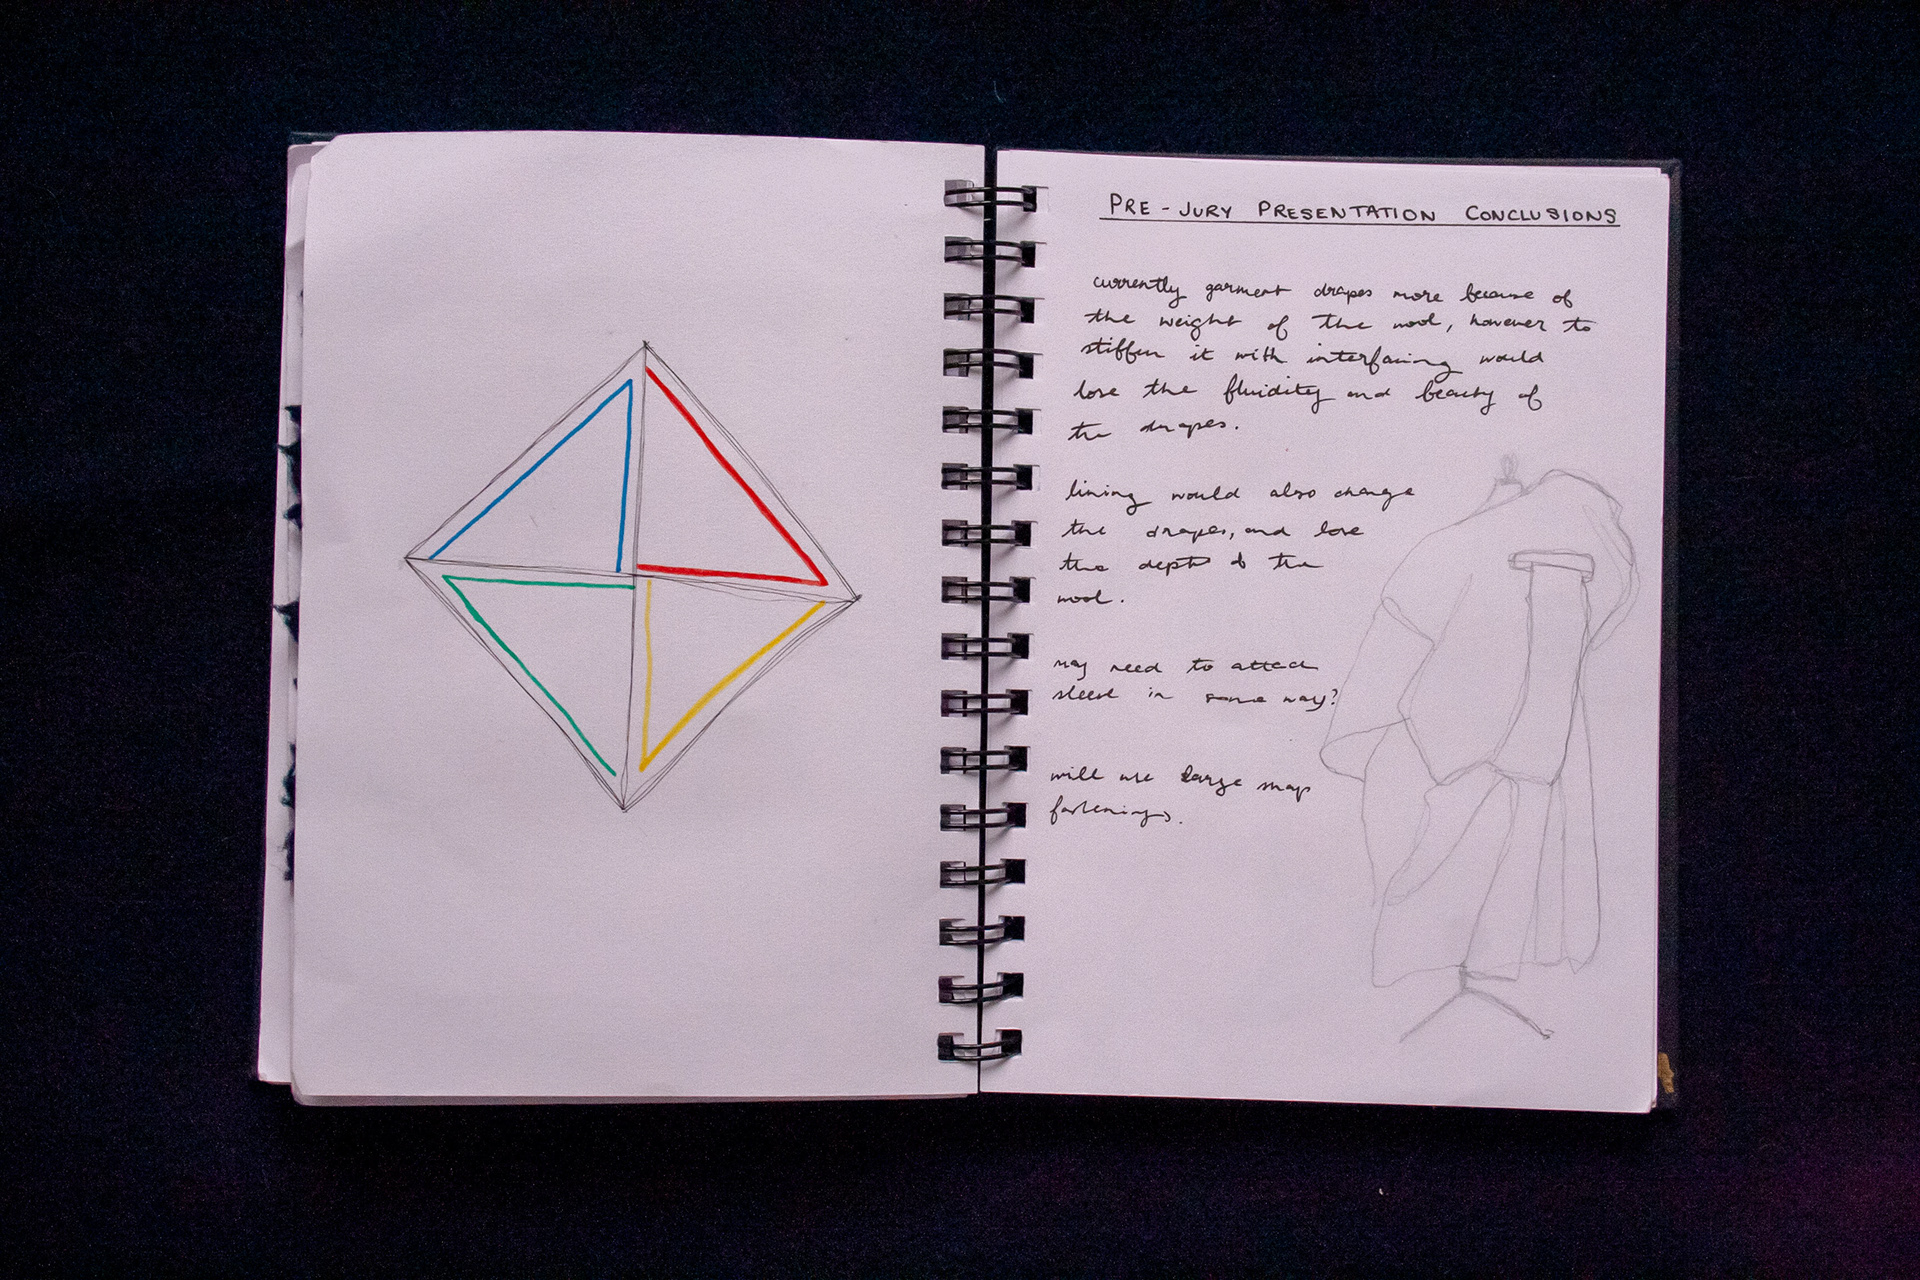 PRE-JURY PRESENTATION CONCLUSIONS
currently garment drapes more because of
the weight of the wool, however to
stiffen it with interfacing would
lose the fluidity and beauty of
the drapes.
lining would also change
the drapes, and lose
the depth of the
wool.
may need to attach
sleeve in some way?
will use large snap
fastenings.